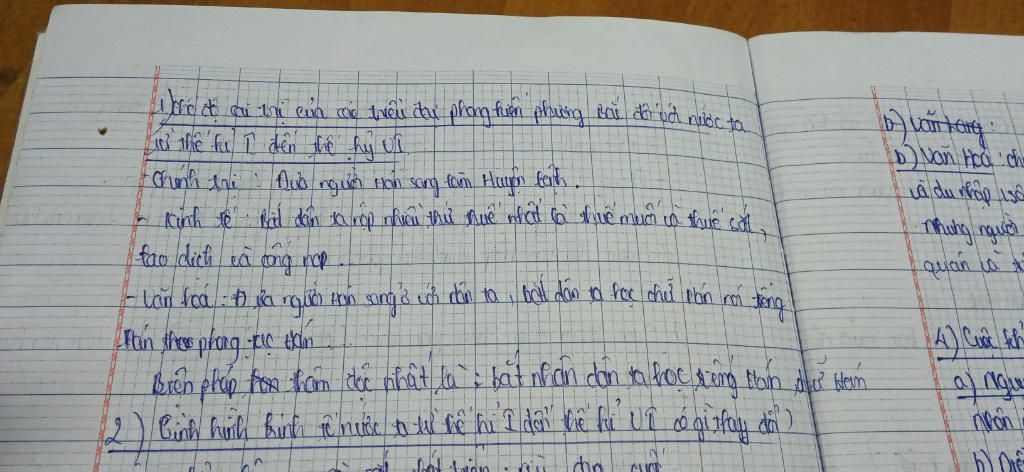 1) Chế độ cai trị của các triều đại phong kiến phương Bắc đối với nước ta
từ thế kỉ I đến thế kỷ VI
- Chính trị : Đưa người Hán sang làm Huyện lệnh.
- Kinh tế : Bắt dân ta nộp nhiều thứ thuế nhất là thuế muối và thuế sắt,
lao dịch và cống nạp.
- Văn hoá : Đưa người Hán sang ở với dân ta, bắt dân ta học chữ Hán nói tiếng
Hán theo phong tục Hán.
Biện pháp thâm độc nhất là : bắt nhân dân ta học tiếng Hán chữ Hán
2) Tình hình kinh tế nước ta từ thế kỉ I đến thế kỉ VI có gì thay đổi?
b) Văn lang :
b) Văn Hoá : ch
và du nhập
nhưng người
quán và
4) Cuộc
a) Nguy
nhân